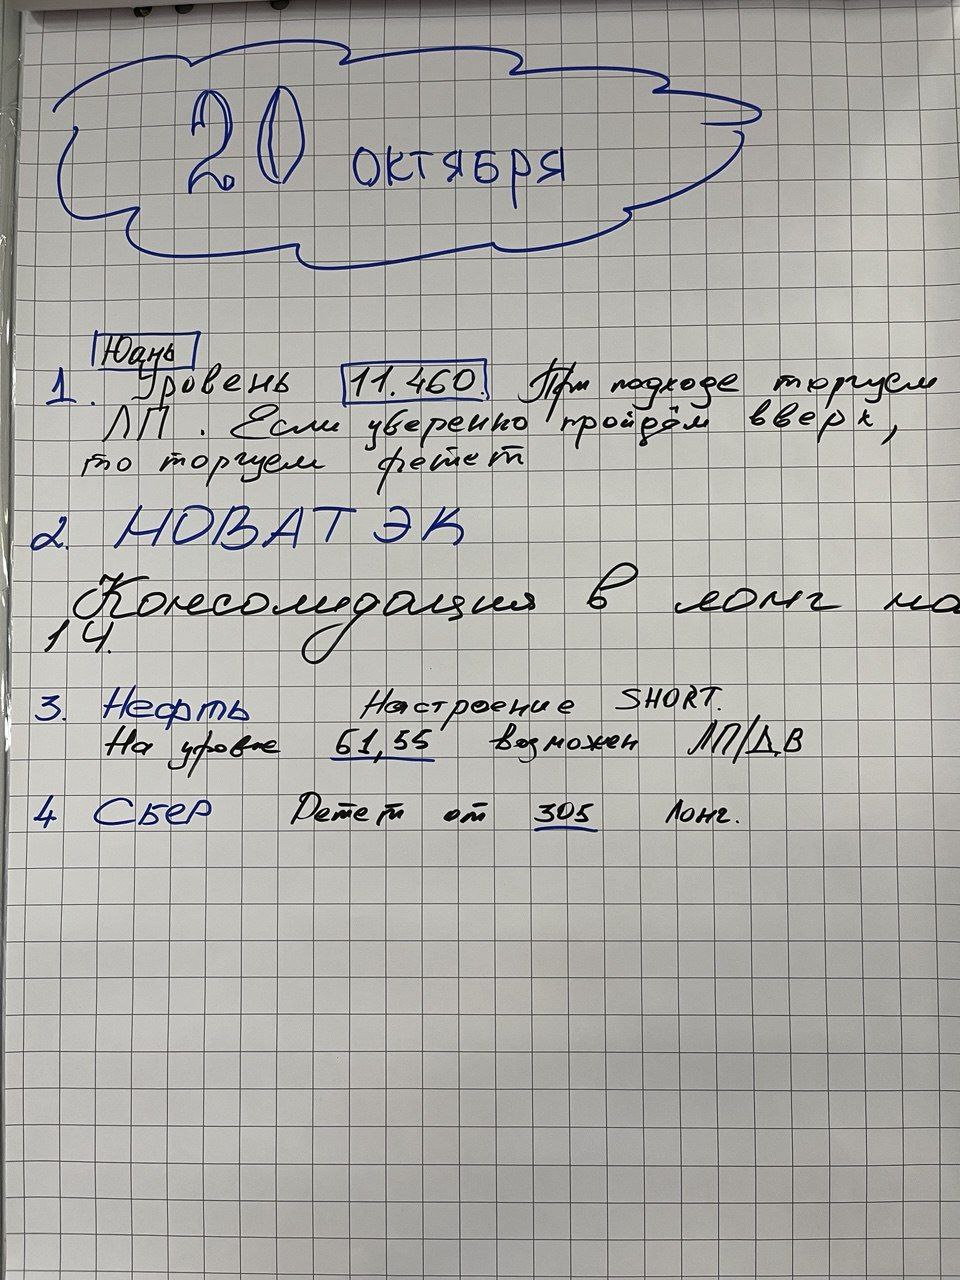 20 октября
Юань
1. Уровень 11.460. При подходе торгуем
ЛП. Если уверенно пройдём вверх,
то торгуем ретест
2. НОВАТЭК
Консолидация в лонг на
1Ч.
3. Нефть Настроение SHORT.
На уровне 61,55 возможен ЛП/ДВ
4 Сбер Ретест от 305 Лонг.